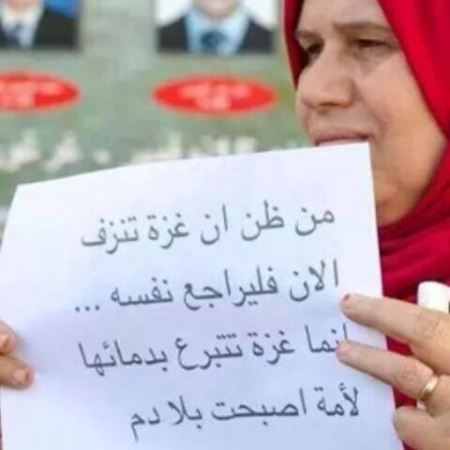 من ظن ان غزة تنزف
الان فليراجع نفسه ...
انما غزة تتبرع بدمائها
لأمة اصبحت بلا دم